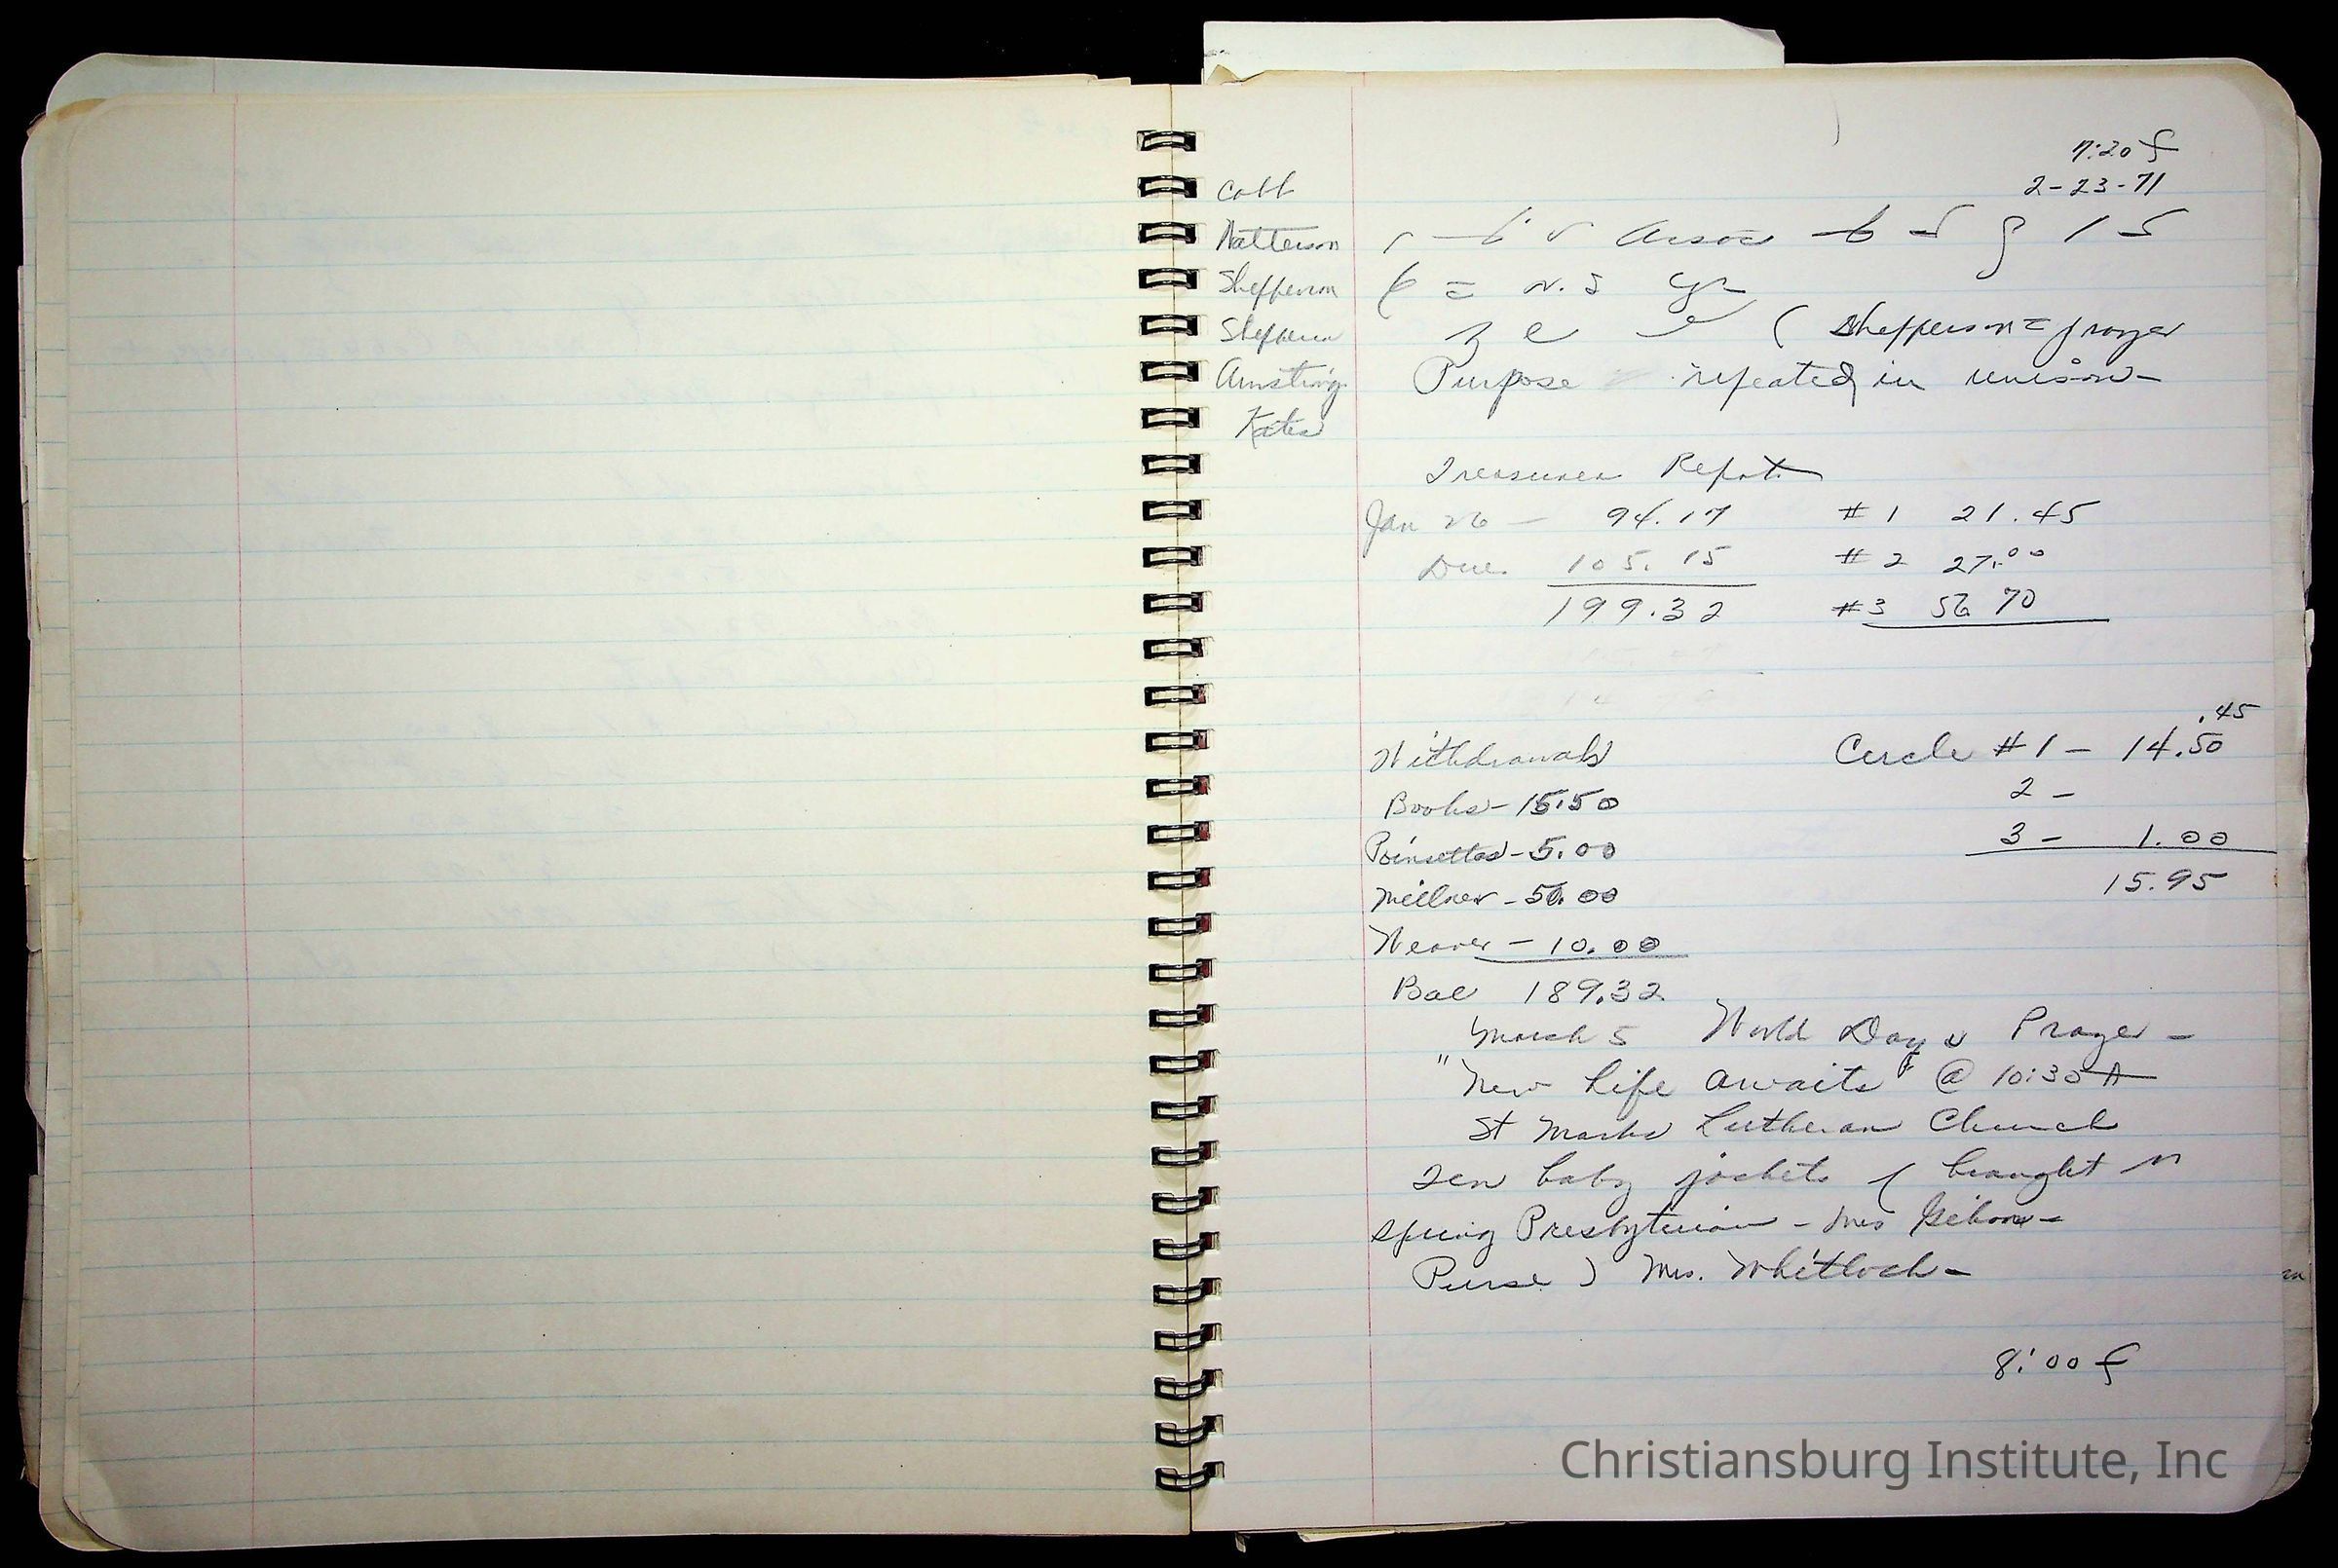 7:20
2-23-71
Cobb
Patterson
Shepperson
Shepperson
Armstrong
Kates
Assoc
( Shepperson = prayer
Purpose repeated in unison -
Treasurer Report
Jan 26 - 94.17 #1 21.45
Due 105.15 #2 27.00
199.32 #3 56 70
Withdrawals
Books - 15.50
Poinsettas - 5.00
Millner - 50.00
Weaver - 10.00
Bal 189.32
.45
Circle #1 - 14.50
2 -
3 - 1.00
15.95
March 5 World Day Prayer -
"New Life Awaits" @ 10:30 A
St Marks Lutheran Church
baby jackets ( brought
Spring Presbyterian - Mrs
Purse ) Mrs. Whitlock -
8:00
Christiansburg Institute, Inc